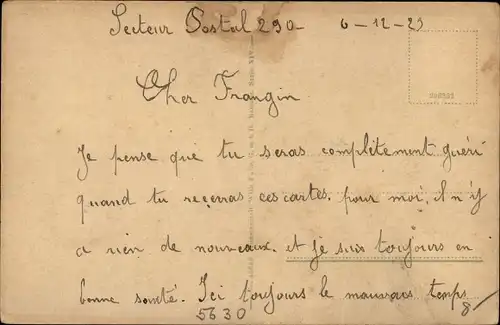 Secteur Postal 290- 6-12-23
Cher Frangin
Je pense que tu seras complètement guéri
quand tu recevras ces cartes. pour moi, il n'y
a rien de nouveaux. et je suis toujours en
bonne santé. Ici toujours le mauvais temps
5630